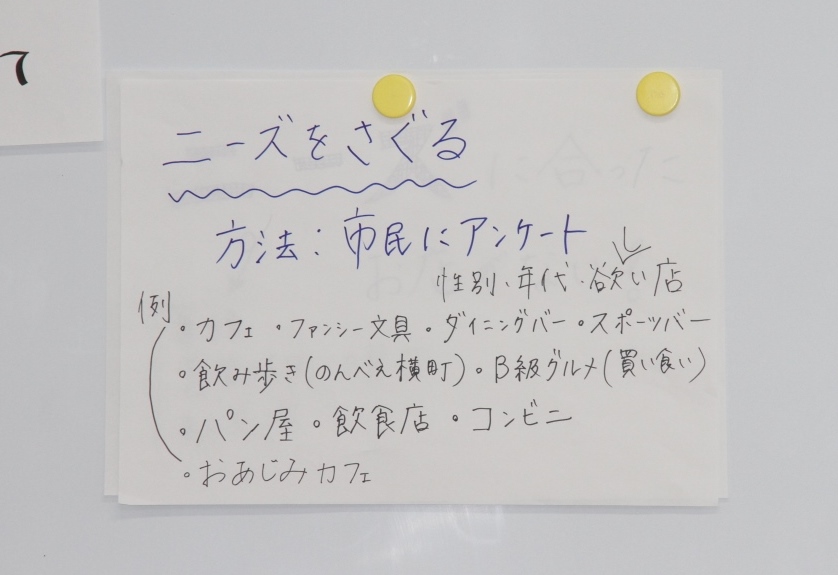 て
ニーズをさぐる
方法:市民にアンケート
性別、年代・欲い店
例
・カフェ ・ファンシー文具 ・ダイニングバー ・スポーツバー
・飲み歩き(のんべえ横町) ・B級グルメ(買い食い)
・パン屋 ・飲食店 ・コンビニ
・おあじみカフェ